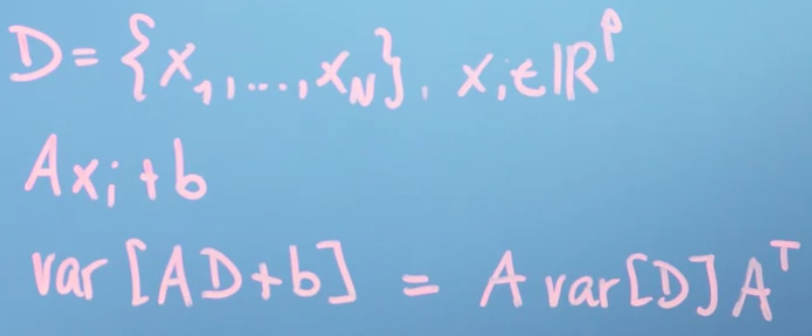 D = {x₁, ..., x_N}, xᵢ ∈ ℝᴾ
Axᵢ + b
var [AD+b] = A var[D] Aᵀ